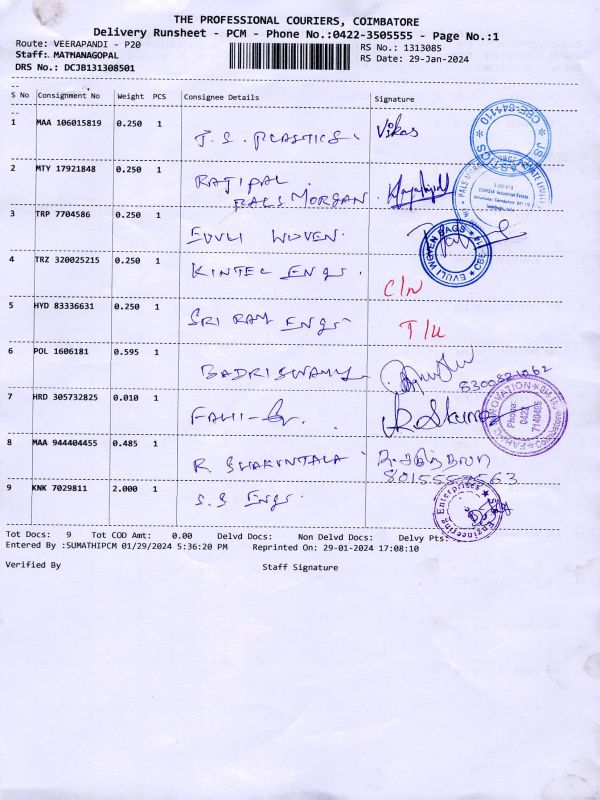 THE PROFESSIONAL COURIERS, COIMBATORE
Delivery Runsheet - PCM - Phone No.:0422-3505555 - Page No.:1
Route: VEERAPANDI - P20 RS No.: 1313085
Staff: MATHANAGOPAL RS Date: 29-Jan-2024
DRS No.: DCJB131308501
S No Consignment No Weight PCS Consignee Details Signature
1 MAA 106015819 0.250 1 J. S. PLASTICS. Vikas
2 MTY 17921848 0.250 1 RAJIPAL
PALS MORGAN
3 TRP 7704586 0.250 1 EVULI WOVEN.
4 TRZ 320025215 0.250 1 KINTEC Engs. C/N
5 HYD 83336631 0.250 1 SRI RAM Engs T/U
6 POL 1606181 0.595 1 BADRISWAMY
7 HRD 305732825 0.010 1
8 MAA 944404455 0.485 1 R. SHAKUNTALA
9 KNK 7029811 2.000 1 S.S Engs.
EVULI WOVEN BAGS CBE
Phone: 0422
Engineering Enterprises
Tot Docs: 9 Tot COD Amt: 0.00 Delvd Docs: Non Delvd Docs: Delvy Pts:
Entered By :SUMATHIPCM 01/29/2024 5:36:20 PM Reprinted On: 29-01-2024 17:08:10
Verified By Staff Signature